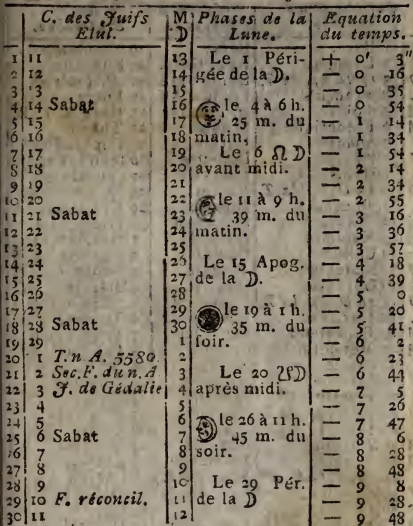 C. des Juifs M Phases de la Equation
Elul. D Lune. du temps.
1 11 13 Le 1 Péri- + 0' 3"
2 12 14 gée de la ☽. — 0 16
3 13 15 — 0 35
4 14 Sabat 16 le 4 à 6 h. — 0 54
5 15 17 25 m. du — 1 14
6 16 18 matin. — 1 34
7 17 19 Le 6 ☊ ☽ — 1 54
8 18 20 avant midi. — 2 14
9 19 21 — 2 34
10 20 22 le 11 à 9 h. — 2 55
11 21 Sabat 23 39 m. du — 3 16
12 22 24 matin. — 3 36
13 23 25 — 3 57
14 24 26 Le 15 Apog. — 4 18
15 25 27 de la ☽. — 4 39
16 26 28 — 5 0
17 27 29 le 19 à 1 h. — 5 20
18 28 Sabat 30 35 m. du — 5 41
19 29 1 soir. — 6 2
20 1 T. n A. 5580. 2 — 6 23
21 2 Sec. F. du n. A 3 Le 20 ☋☽ — 6 44
22 3 J. de Gédalie 4 après midi. — 7 5
23 4 5 — 7 26
24 5 6 le 26 à 11 h. — 7 47
25 6 Sabat 7 45 m. du — 8 6
26 7 8 soir. — 8 28
27 8 9 — 8 48
28 9 10 Le 29 Pér. — 9 8
29 10 F. réconcil. 11 de la ☽ — 9 28
30 11 12 — 9 48